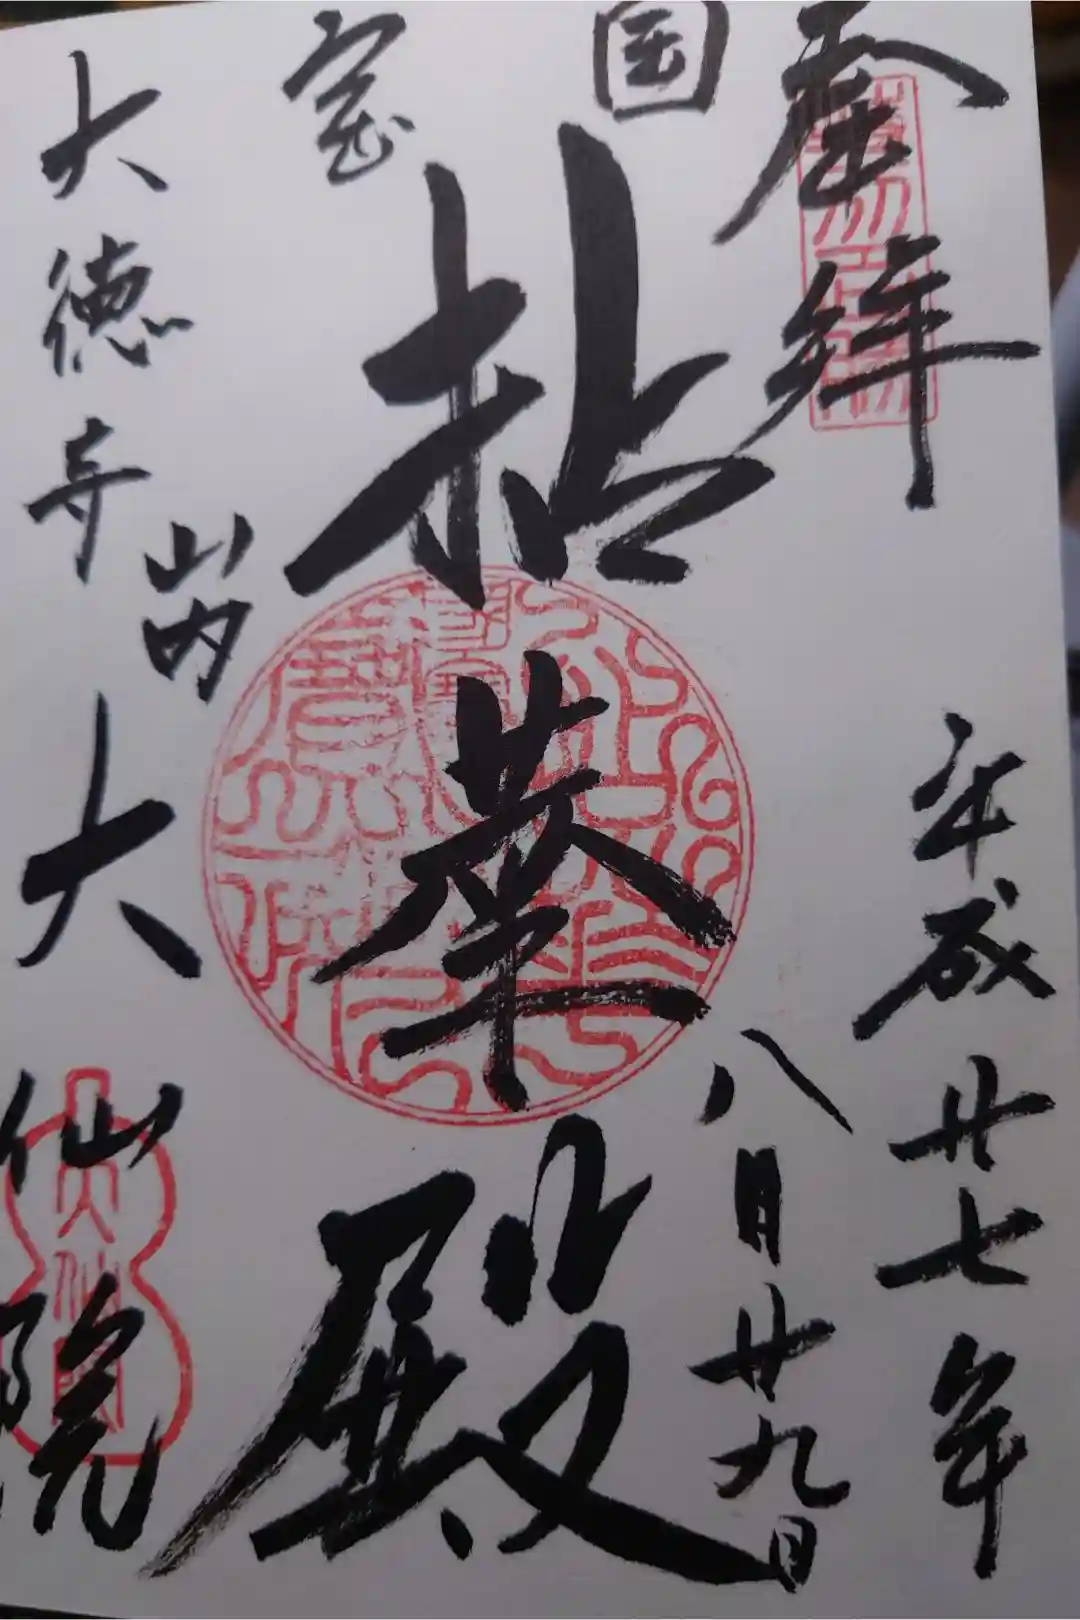 奉拝
平成廿七年
八月廿九日
国宝
拈華殿
大徳寺
山内
大仙院
大仙院